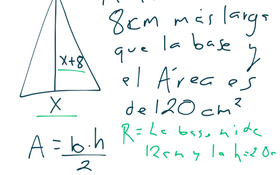 8cm más larga
que la base y
x+8
el Área es
de 120 cm²
x
R= La base mide
12cm y la h=20
A = b.h
2